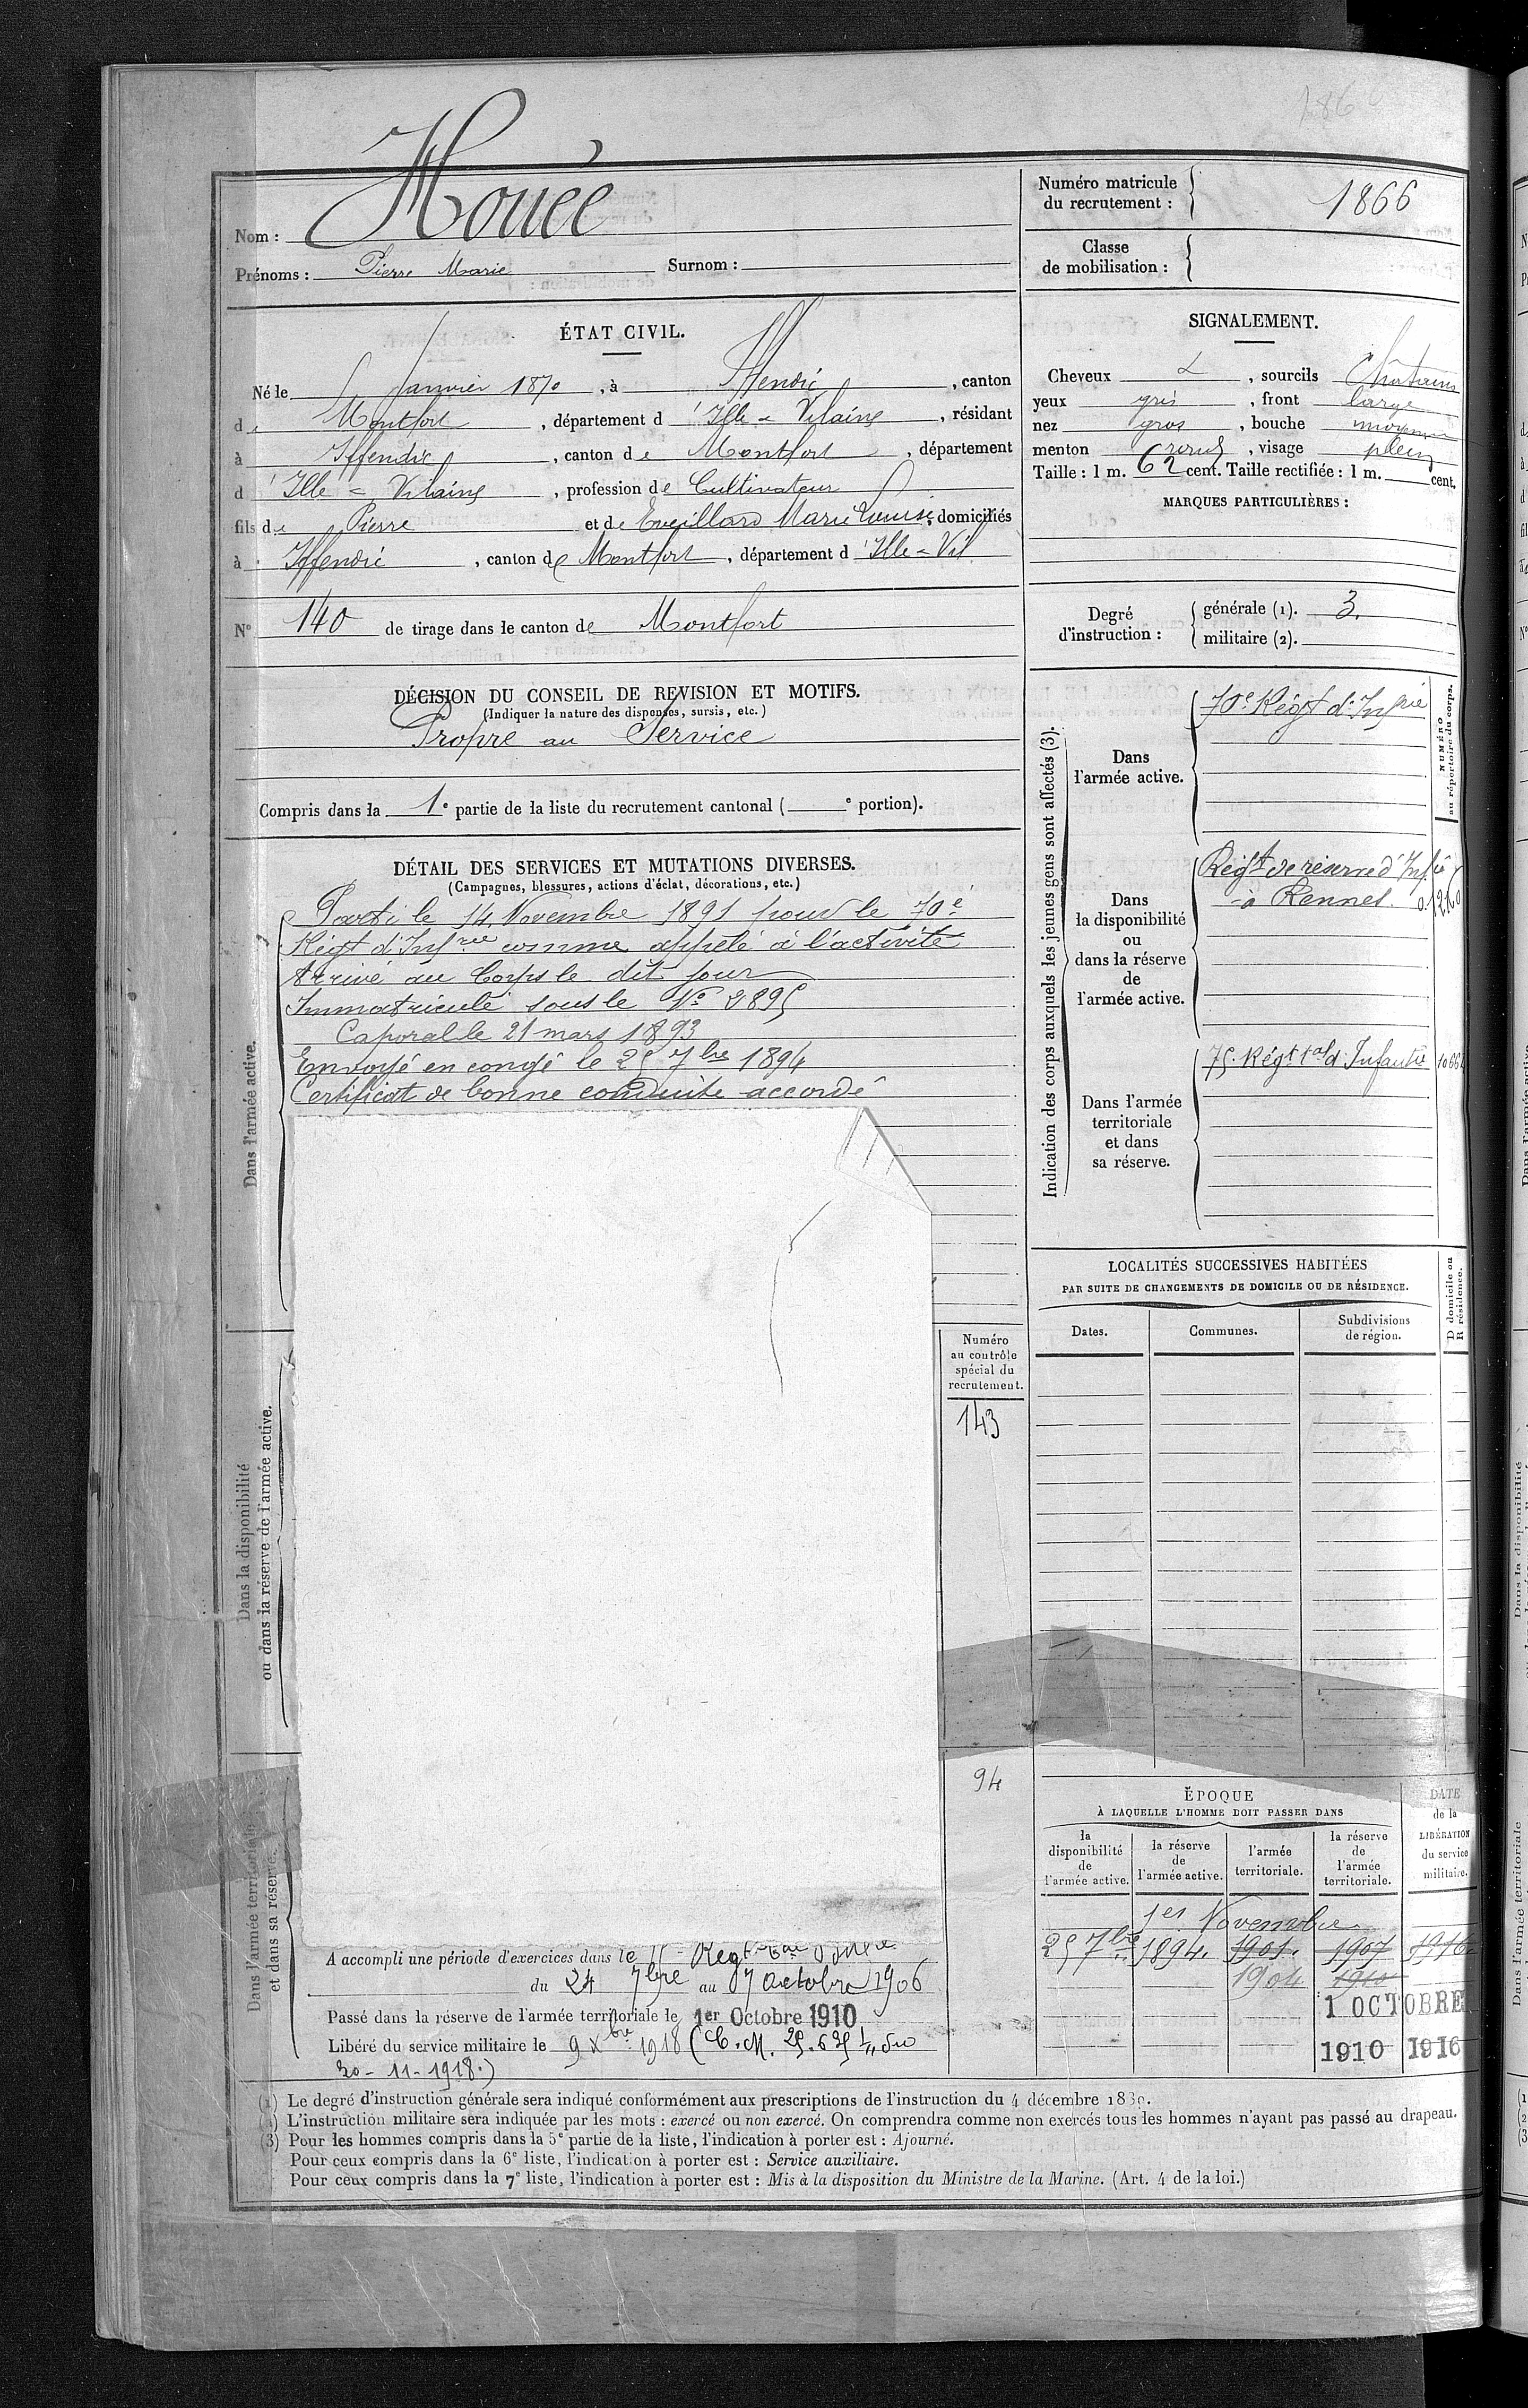 186
Nom : Houée
Prénoms : Pierre Marie Surnom :
Numéro matricule du recrutement : 1866
Classe de mobilisation :
ÉTAT CIVIL.
Né le 5 Janvier 1870, à Iffendic, canton
de Montfort, département d'Ille-Vilaine, résidant
à Iffendic, canton de Montfort, département
d'Ille-Vilaine, profession de Cultivateur
fils de Pierre et de Eveillard Marie Louise, domiciliés
à Iffendic, canton de Montfort, département d'Ille-Vil
N° 140 de tirage dans le canton de Montfort
SIGNALEMENT.
Cheveux , sourcils Châtains
yeux gris, front large
nez gros, bouche moyenne
menton rond, visage plein
Taille : 1 m. 62 cent. Taille rectifiée : 1 m. cent.
MARQUES PARTICULIÈRES :
Degré d'instruction :
générale (1). 3.
militaire (2).
DÉCISION DU CONSEIL DE REVISION ET MOTIFS.
(Indiquer la nature des dispenses, sursis, etc.)
Propre au Service
Compris dans la 1e partie de la liste du recrutement cantonal ( e portion).
DÉTAIL DES SERVICES ET MUTATIONS DIVERSES.
(Campagnes, blessures, actions d'éclat, décorations, etc.)
Dans l'armée active.
Parti le 14 Novembre 1891 pour le 70e
Régt d'Infrie comme appelé à l'activité
Arrivé au Corps le dit jour
Immatriculé sous le N° 2895
Caporal le 21 mars 1893
Envoyé en congé le 25 7bre 1894
Certificat de bonne conduite accordé
Dans la disponibilité
ou dans la réserve de l'armée active.
Numéro
au contrôle
spécial du
recrutement.
143
94
Dans l'armée territoriale
et dans sa réserve.
A accompli une période d'exercices dans le
du 24 7bre au 7 octobre 1906
Passé dans la réserve de l'armée territoriale le 1er Octobre 1910
Libéré du service militaire le 9 Xbre 1918 (C.M. du
30-11-1918.)
Indication des corps auxquels les jeunes gens sont affectés (3).
NUMÉRO
au répertoire du corps.
Dans
l'armée active.
70e Régt d'Infrie
Dans
la disponibilité
ou
dans la réserve
de
l'armée active.
Régt de réserve d'Infie
à Rennes
Dans l'armée
territoriale
et dans
sa réserve.
75e Régt tal d'Infanterie
LOCALITÉS SUCCESSIVES HABITÉES
PAR SUITE DE CHANGEMENTS DE DOMICILE OU DE RÉSIDENCE.
D domicile ou
R résidence.
Dates. Communes. Subdivisions de région.
ÉPOQUE
À LAQUELLE L'HOMME DOIT PASSER DANS
la disponibilité de l'armée active.
la réserve de l'armée active.
l'armée territoriale.
la réserve de l'armée territoriale.
DATE de la LIBÉRATION du service militaire.
1er Novembre
25 7bre 1894. 1901. 1907 1916
1904 1910
1 OCTOBRE
1910 1916
(1) Le degré d'instruction générale sera indiqué conformément aux prescriptions de l'instruction du 4 décembre 1889.
(2) L'instruction militaire sera indiquée par les mots : exercé ou non exercé. On comprendra comme non exercés tous les hommes n'ayant pas passé au drapeau.
(3) Pour les hommes compris dans la 5e partie de la liste, l'indication à porter est : Ajourné.
Pour ceux compris dans la 6e liste, l'indication à porter est : Service auxiliaire.
Pour ceux compris dans la 7e liste, l'indication à porter est : Mis à la disposition du Ministre de la Marine. (Art. 4 de la loi.)